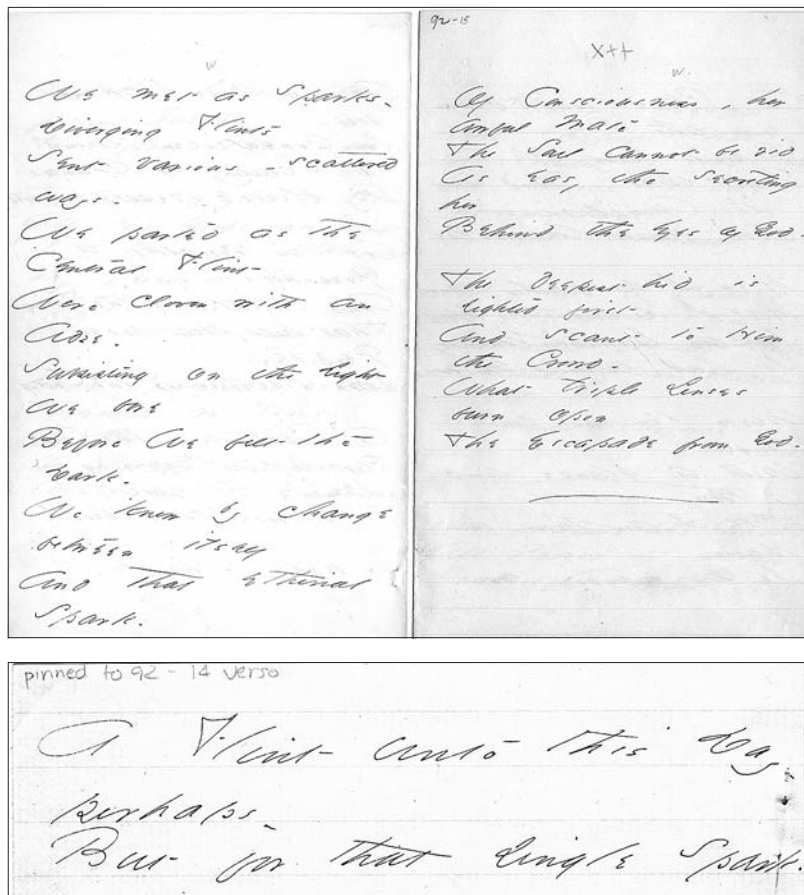 w
We met as Sparks -
Diverging Flints
Sent various - scattered
ways -
We parted as the
Central Flint
Were cloven with an
Adze -
Subsisting on the Light
We bore
Before We felt the
Dark -
We knew by change
between itself
And that etherial
Spark.
92-15
X++
w
Of Consciousness, her
awful Mate
The Soul cannot be rid
As easy the secreting
her
Behind the Eyes of God.
The deepest hid is
sighted first
And scant to Him
the Crowd -
What triple Lenses
burn upon
The Escapade from God -
pinned to 92 - 14 verso
A Flint unto this Day
perhaps -
But for that single Spark.